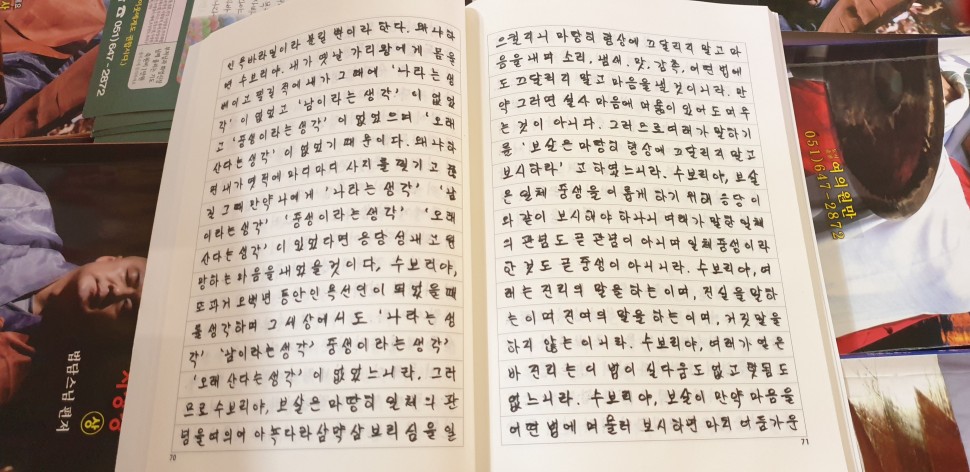 인욕바라밀이라 불릴 뿐이라 한다. 왜냐하
면 수보리야, 내가 옛날 가리왕에게 몸을
베이고 찢길 적에 내가 그 때에 '나라는 생
각' 이 없었고 '남이라는 생각' 이 없었
고 '중생이라는 생각' 이 없었으며 '오래
산다는 생각' 이 없었기 때문이다. 왜냐하
면 내가 옛적에 마디마디 사지를 찢기고 끊
길 그때 만약 나에게 '나라는 생각' '남
이라는 생각' '중생이라는 생각' '오래
산다는 생각' 이 있었다면 응당 성내고 원
망하는 마음을 내었을 것이다, 수보리야,
또 과거 오백년 동안 인욕선인이 되었을 때
를 생각하며 그 세상에서도 '나라는 생
각' '남이라는 생각' 중생이라는 생각'
'오래 산다는 생각' 이 없었느니라. 그러
므로 수보리야, 보살은 마땅히 일체의 관
념을 여의어 아뇩다라삼먁삼보리심을 일
70
으킬지니 마땅히 형상에 끄달리지 말고 마
음을 내며 소리, 냄새, 맛, 감촉, 어떤 법에
도 끄달리지 말고 마음을 낼 것이니라. 만
약 그러면 설사 마음에 머묾이 있어도 머무
는 것이 아니다. 그러므로 여래가 말하기
를 '보살은 마땅히 형상에 끄달리지 말고
보시하라' 고 하였느니라. 수보리야, 보살
은 일체 중생을 이롭게 하기 위해 응당 이
와 같이 보시해야 하나니 여래가 말한 일체
의 관념도 곧 관념이 아니며 일체 중생이라
한 것도 곧 중생이 아니니라. 수보리야, 여
래는 진리의 말을 하는 이며, 진실을 말하
는 이며 진여의 말을 하는 이며, 거짓말을
하지 않는 이니라. 수보리야, 여래가 얻은
바 진리는 이 법이 실다움도 없고 헛됨도
없느니라. 수보리야, 보살이 만약 마음을
어떤 법에 머물러 보시하면 마치 어둠가운
71
051)647-2872
법담스님 편저
상
여의원만
051)647-2872